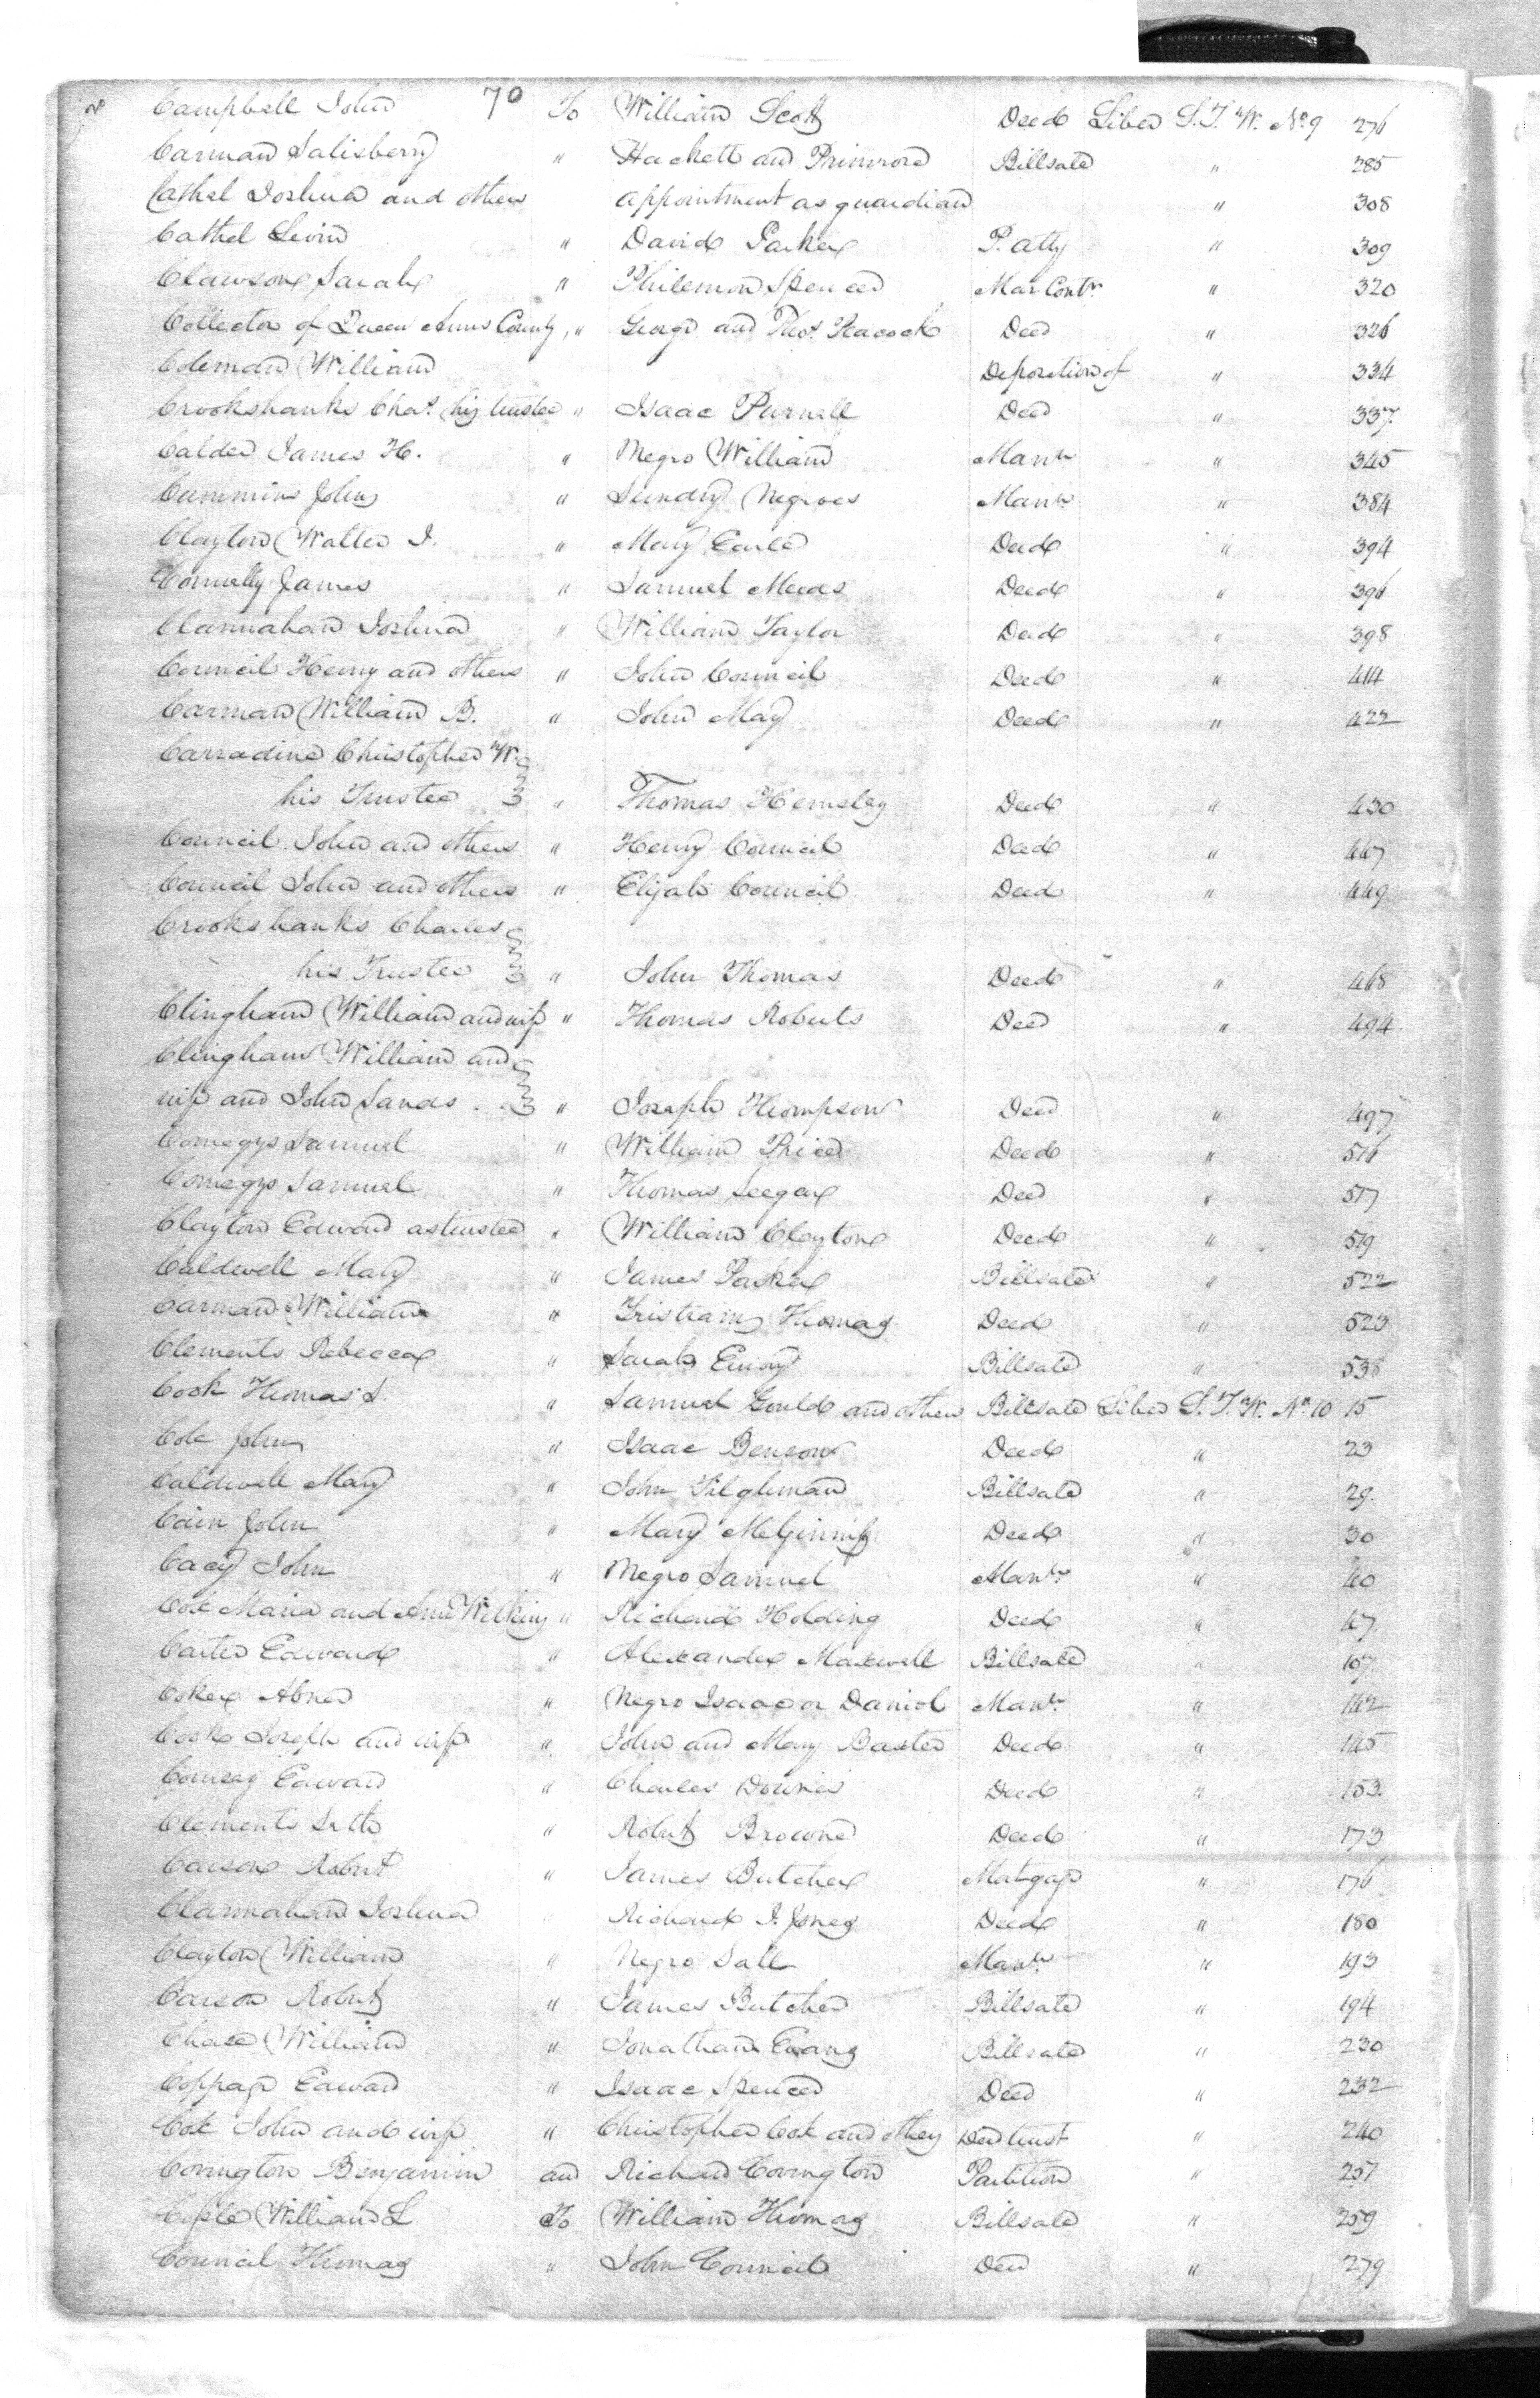 70
Campbell John To William Scott Deed Liber S.T.W. No. 9 276
Carman Salisberry " Hackett and Primrose Billsale " 285
Cathel Joshua and others appointment as guardian " 308
Cathel Levin " David Parker P. atty " 309
Clawson Sarah " Philemon Spencer Mar Contr. " 320
Collector of Queen Anns County, " George and Thos. Peacock Deed " 326
Coleman William Deposition of " 334
Crookshanks Chas. his trustee " Isaac Purnell Deed " 337.
Calder James H. " Negro William Manr. " 345
Cummins John " Sundry Negroes Manr. " 384
Clayton Walter J. " Mary Earle Deed " 394
Connelly James " Samuel Meeds Deed " 396
Clannahan Joshua " William Taylor Deed " 398
Council Henry and others " John Council Deed " 414
Carman William B. " John May Deed " 422
Carradine Christopher W.
his Trustee " Thomas Hemsley Deed " 430
Council John and others " Henry Council Deed " 447
Council John and others " Elijah Council Deed " 449
Crookshanks Charles
his Trustee " John Thomas Deed " 468
Clingham William and wife " Thomas Roberts Deed " 494
Clingham William and
wife and John Sands . . " Joseph Thompson Deed " 497
Comegys Samuel " William Price Deed " 516
Comegys Samuel " Thomas Seegar Deed " 517
Clayton Edward as trustee " William Clayton Deed " 519
Caldwell Mary " James Parker Billsale " 522
Carman William " Tristram Thomas Deed " 523
Clements Rebecca " Sarah Emory Billsale " 538
Cook Thomas S. " Samuel Gould and others Billsale Liber S.T.W. No. 10 15
Cole John " Isaac Benson Deed " 23
Caldwell Mary " John Tilghman Billsale " 29.
Cain John " Mary McGinniss Deed " 30
Cacy John " Negro Samuel Manr. " 40
Cox Maria and Ann Wilkins " Richard Holding Deed " 47.
Carter Edward " Alexander Maxwell Billsale " 107.
Coker Abner " Negro Isaac or Daniel Manr. " 142
Cook Joseph and wife " John and Mary Baxter Deed " 145
Edward " Charles Downes Deed " 153.
Clements Seth " Robert Browne Deed " 173
Carson Robert " James Butcher Mortgage " 176
Clannahan Joshua " Richard I. Jones Deed " 180
Clayton William " Negro Sall Manr. " 193
Carson Robert " James Butcher Billsale " 194
Chace William " Jonathan Evans Billsale " 230
Coppage Edward " Isaac Spencer Deed " 232
Cox John and wife " Christopher Cox and others Deed trust " 240
Covington Benjamin and Richard Covington Partition " 257
William L To William Thomas Billsale " 259
Council Thomas " John Council Deed " 279